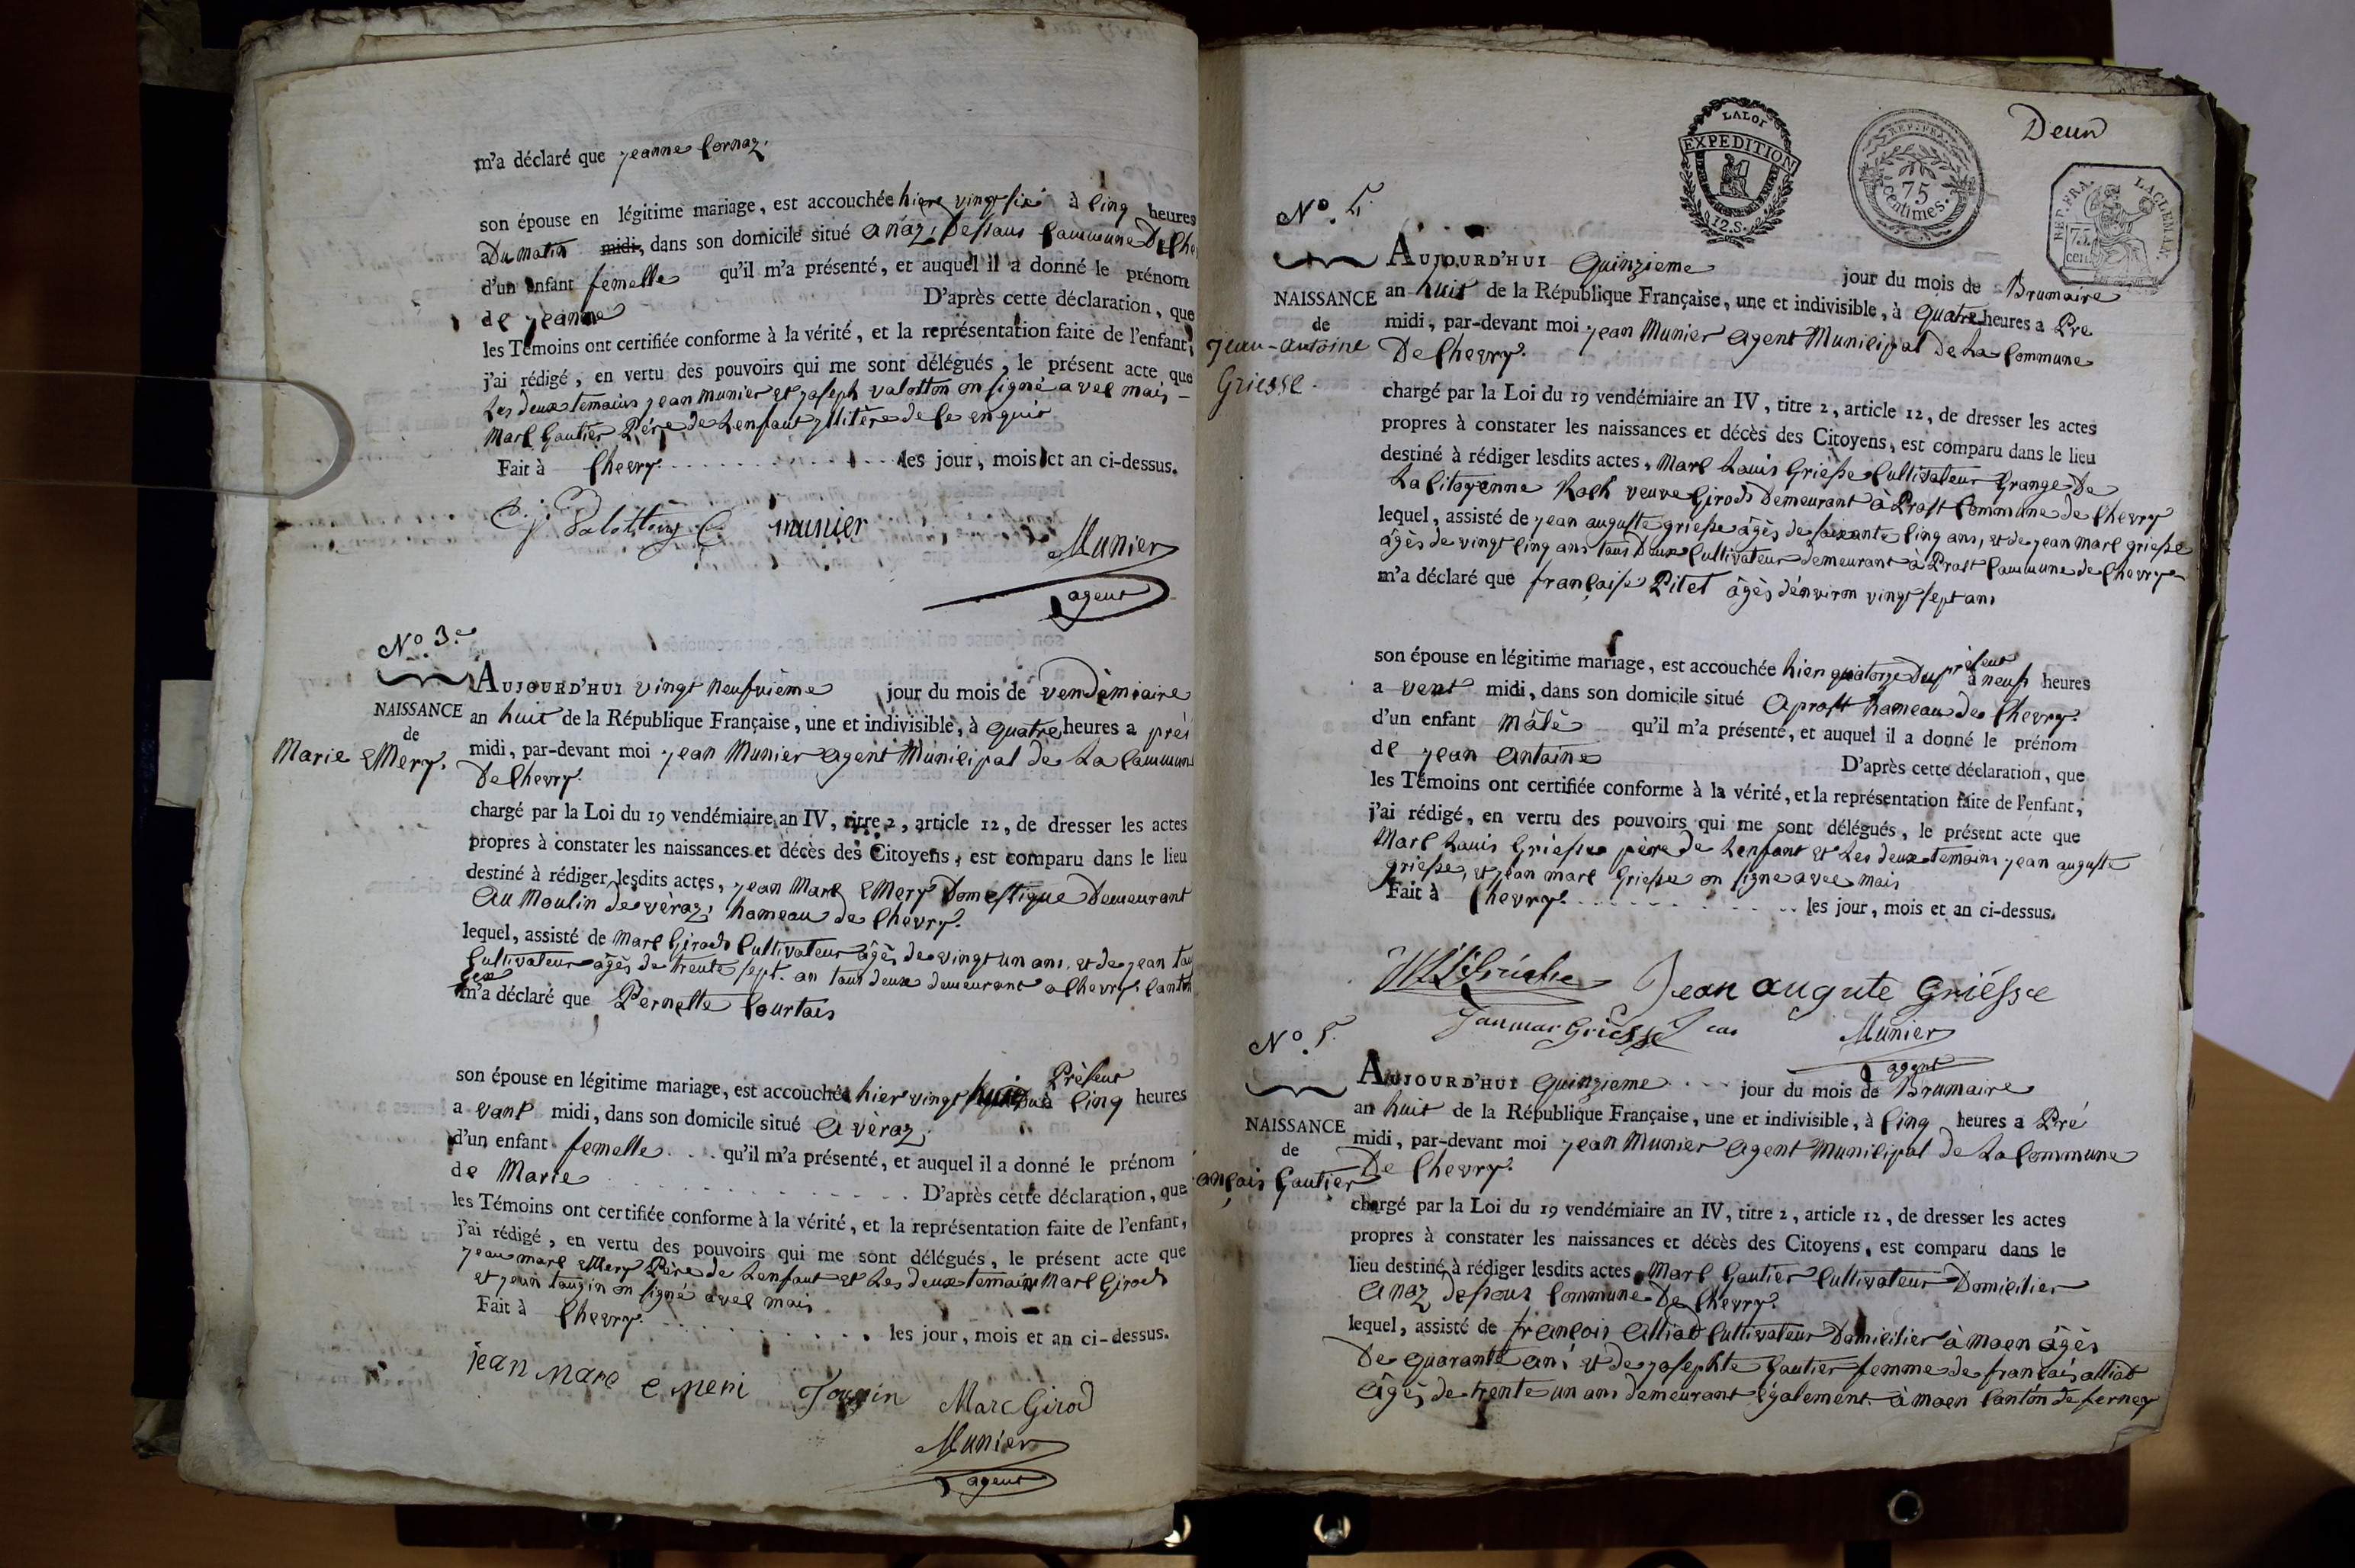 m'a déclaré que jeanne Cornaz.
son épouse en légitime mariage, est accouchée hiere vingt six à Cinq heures
a Du matin midi, dans son domicile situé a naz Dessous Commune De Che
d'un enfant femelle qu'il m'a présenté, et auquel il a donné le prénom
de jeanne D'après cette déclaration, que
les Témoins ont certifiée conforme à la vérité, et la représentation faite de l'enfant,
j'ai rédigé, en vertu des pouvoirs qui me sont délégués, le présent acte que
Les deux temoins jean munier et joseph valotton on signé avec mois
Marc Gautier Père de Lenfant illitère de ce enquis
Fait à Chevry. les jour, mois et an ci-dessus.
munier
Munier
agent
N.o 3.e
AUJOURD'HUI vingt neufvième jour du mois de vendémiaire
NAISSANCE an huit de la République Française, une et indivisible, à quatre heures a prés
de
Marie EMery. midi, par-devant moi jean Munier agent Municipal de La Commun
De Chevry.
chargé par la Loi du 19 vendémiaire an IV, titre 2, article 12, de dresser les actes
propres à constater les naissances et décès des Citoyens, est comparu dans le lieu
destiné à rédiger lesdits actes, jean Marc EMery Domestique Demeurant
Au Moulin de veraz, hameau de Chevry.
lequel, assisté de Marc Girod Cultivateur âgès de vingt un ans, et de jean tou
Cultivateur âgès de trente sept an tous deux demeurant a Chevry Canton
m'a déclaré que Pernette Courtois
son épouse en légitime mariage, est accouchée hier vingt huit Du Présent à Cinq heures
a vant midi, dans son domicile situé A vèraz,
d'un enfant femelle qu'il m'a présenté, et auquel il a donné le prénom
de Marie D'après cette déclaration, que
les Témoins ont certifiée conforme à la vérité, et la représentation faite de l'enfant,
j'ai rédigé, en vertu des pouvoirs qui me sont délégués, le présent acte que
jean marc EMery Père de Lenfant et Les deux temoins Marc Girod
et jean tougin on signé avec mois
Fait à Chevry. les jour, mois et an ci-dessus.
jean Marc emeri Tougin Marc Girod
Munier
agent
Deux
LA LOI
EXPEDITION
12. S.
REP. FRA.
75
centimes.
REP. FRA. 75 cen.
N.o 4.
AUJOURD'HUI Quinzieme jour du mois de Brumaire
NAISSANCE an huit de la République Française, une et indivisible, à quatre heures a Pre
de
jean-antoine Griesse. midi, par-devant moi jean Munier agent Municipal De La Commune
De Chevry.
chargé par la Loi du 19 vendémiaire an IV, titre 2, article 12, de dresser les actes
propres à constater les naissances et décès des Citoyens, est comparu dans le lieu
destiné à rédiger lesdits actes, Marc Louis Griesse Cultivateur Grange De
La Citoyenne Roch veuve Girod Demeurant à Prost Commune de Chevry
lequel, assisté de jean auguste griesse âgès de soixante Cinq ans, et de jean Marc griesse
âgès de vingt Cinq ans tous Deux Cultivateur demeurant à Prost Commune de Chevry
m'a déclaré que françoise Pitet âgès d'énviron vingt sept ans
son épouse en légitime mariage, est accouchée hier quatorze Du présent à neuf heures
a vent midi, dans son domicile situé A prost hameau de Chevry.
d'un enfant Mâle qu'il m'a présenté, et auquel il a donné le prénom
de jean Antoine D'après cette déclaration, que
les Témoins ont certifiée conforme à la vérité, et la représentation faite de l'enfant,
j'ai rédigé, en vertu des pouvoirs qui me sont délégués, le présent acte que
Marc Louis Griesse père de Lenfant et Les deux temoins jean auguste
griesse, et jean marc Griesse on signe avec mois
Fait à Chevry. les jour, mois et an ci-dessus.
Jean augute Griésse
Janmar Griesse
Munier
agent
N.o 5.
AUJOURD'HUI Quinzieme jour du mois de Brumaire
an huit de la République Française, une et indivisible, à Cinq heures a Pré
NAISSANCE
de
ançois Gautier midi, par-devant moi jean Munier agent Municipal de La Commune
De Chevry.
chargé par la Loi du 19 vendémiaire an IV, titre 2, article 12, de dresser les actes
propres à constater les naissances et décès des Citoyens, est comparu dans le
lieu destiné à rédiger lesdits actes, Marc Gautier Cultivateur Domicilier
A naz dessous Commune De Chevry.
lequel, assisté de françois Alliod Cultivateur Domicilier à moen âgès
De quarante ans et de josephte Gautier femme de françois alliod
âgès de trente un ans demeurant également à moen Canton de ferney